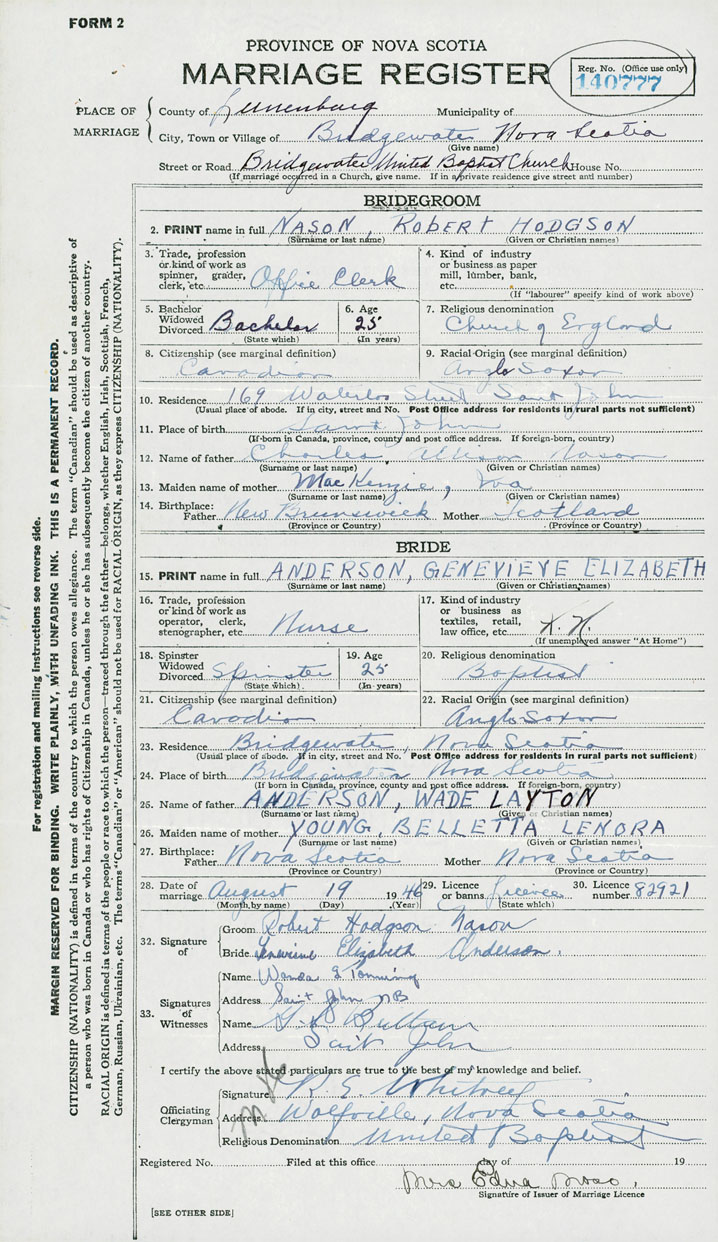 FORM 2
PROVINCE OF NOVA SCOTIA
MARRIAGE REGISTER
Reg. No. (Office use only)
140777
PLACE OF MARRIAGE
County of Lunenburg Municipality of
City, Town or Village of Bridgewater Nova Scotia
(Give name)
Street or Road Bridgewater United Baptist Church House No.
(If marriage occurred in a Church, give name. If in a private residence give street and number)
BRIDEGROOM
2. PRINT name in full NASON, ROBERT HODGSON
(Surname or last name) (Given or Christian names)
3. Trade, profession or kind of work as spinner, grader, clerk, etc. Office Clerk
4. Kind of industry or business as paper mill, lumber, bank, etc.
(If "labourer" specify kind of work above)
5. Bachelor Widowed Divorced Bachelor
(State which)
6. Age 25
(In years)
7. Religious denomination
Church of England
8. Citizenship (see marginal definition)
Canadian
9. Racial Origin (see marginal definition)
Anglo Saxon
10. Residence 169 Waterloo Street Saint John
(Usual place of abode. If in city, street and No. Post Office address for residents in rural parts not sufficient)
11. Place of birth Saint John
(If born in Canada, province, county and post office address. If foreign-born, country)
12. Name of father Charles Allison Nason
(Surname or last name) (Given or Christian names)
13. Maiden name of mother MacKenzie,
(Surname or last name) (Given or Christian names)
14. Birthplace: Father New Brunswick Mother Scotland
(Province or Country) (Province or Country)
BRIDE
15. PRINT name in full ANDERSON, GENEVIEVE ELIZABETH
(Surname or last name) (Given or Christian names)
16. Trade, profession or kind of work as operator, clerk, stenographer, etc. Nurse
17. Kind of industry or business as textiles, retail, law office, etc.
(If unemployed answer "At Home")
18. Spinster Widowed Divorced Spinster
(State which)
19. Age 25
(In years)
20. Religious denomination
Baptist
21. Citizenship (see marginal definition)
Canadian
22. Racial Origin (see marginal definition)
Anglo Saxon
23. Residence Bridgewater, Nova Scotia
(Usual place of abode. If in city, street and No. Post Office address for residents in rural parts not sufficient)
24. Place of birth Bridgewater Nova Scotia
(If born in Canada, province, county and post office address. If foreign-born, country)
25. Name of father ANDERSON, WADE LAYTON
(Surname or last name) (Given or Christian names)
26. Maiden name of mother YOUNG, BELLETTA LENORA
(Surname or last name) (Given or Christian names)
27. Birthplace: Father Nova Scotia Mother Nova Scotia
(Province or Country) (Province or Country)
28. Date of marriage August 19 1946
(Month by name) (Day) (Year)
29. Licence or banns License
(State which)
30. Licence number 82921
32. Signature of
Groom Robert Hodgson Nason
Bride Genevieve Elizabeth Anderson.
33. Signatures of Witnesses
Name Wanda
Address Saint John NB
Name
Address Saint John
I certify the above stated particulars are true to the best of my knowledge and belief.
Officiating Clergyman
Signature R. E. Whitney
Address Wolfville, Nova Scotia
Religious Denomination United Baptist
Registered No. Filed at this office day of 19
Mrs Edna
Signature of Issuer of Marriage Licence
[SEE OTHER SIDE]
For registration and mailing instructions see reverse side.
MARGIN RESERVED FOR BINDING. WRITE PLAINLY, WITH UNFADING INK. THIS IS A PERMANENT RECORD.
CITIZENSHIP (NATIONALITY) is defined in terms of the country to which the person owes allegiance. The term "Canadian" should be used as descriptive of
a person who was born in Canada or who has rights of Citizenship in Canada, unless he or she has subsequently become the citizen of another country.
RACIAL ORIGIN is defined in terms of the people or race to which the person—traced through the father—belongs, whether English, Irish, Scottish, French,
German, Russian, Ukrainian, etc. The terms "Canadian" or "American" should not be used for RACIAL ORIGIN, as they express CITIZENSHIP (NATIONALITY).